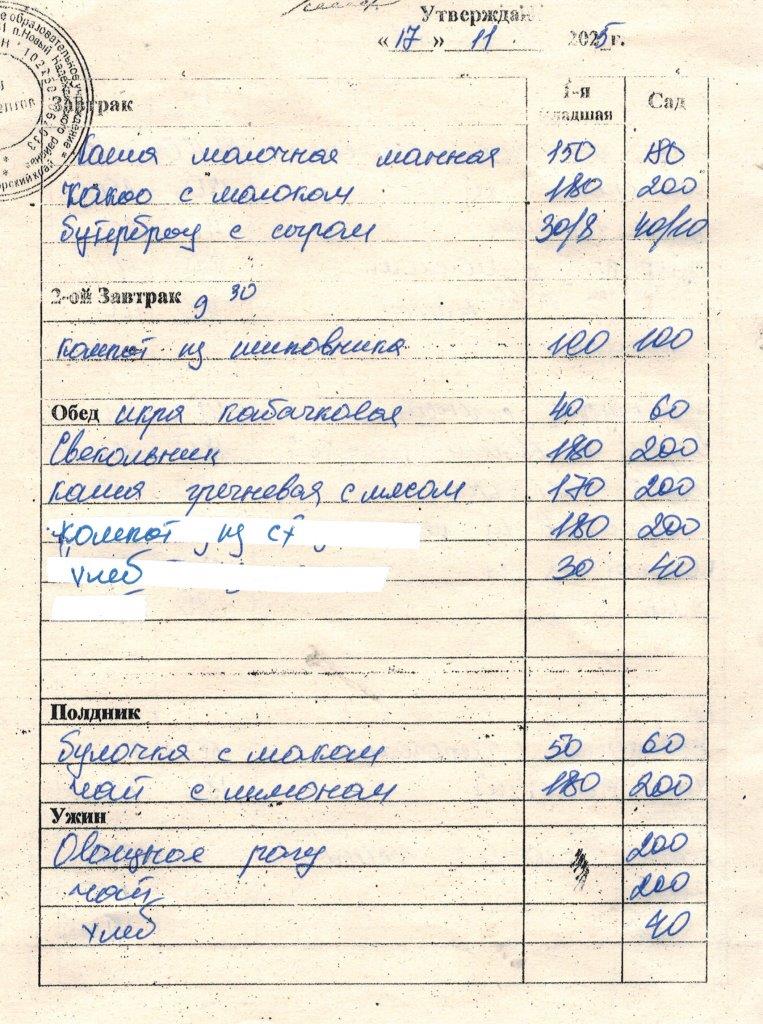 Утверждаю
« 17 » 11 2025 г.
Завтрак 1-я младшая Сад
Каша молочная манная 150 180
Какао с молоком 180 200
Бутерброд с сыром 30/8 40/10
2-ой Завтрак 9 30
компот из шиповника 100 100
Обед икра кабачковая 40 60
Свекольник 180 200
каша гречневая с мясом 170 200
Компот из с/ф 180 200
Хлеб 30 40
Полдник
Булочка с маком 50 60
Чай с лимоном 180 200
Ужин
Овощное рагу 200
Чай 200
Хлеб 40